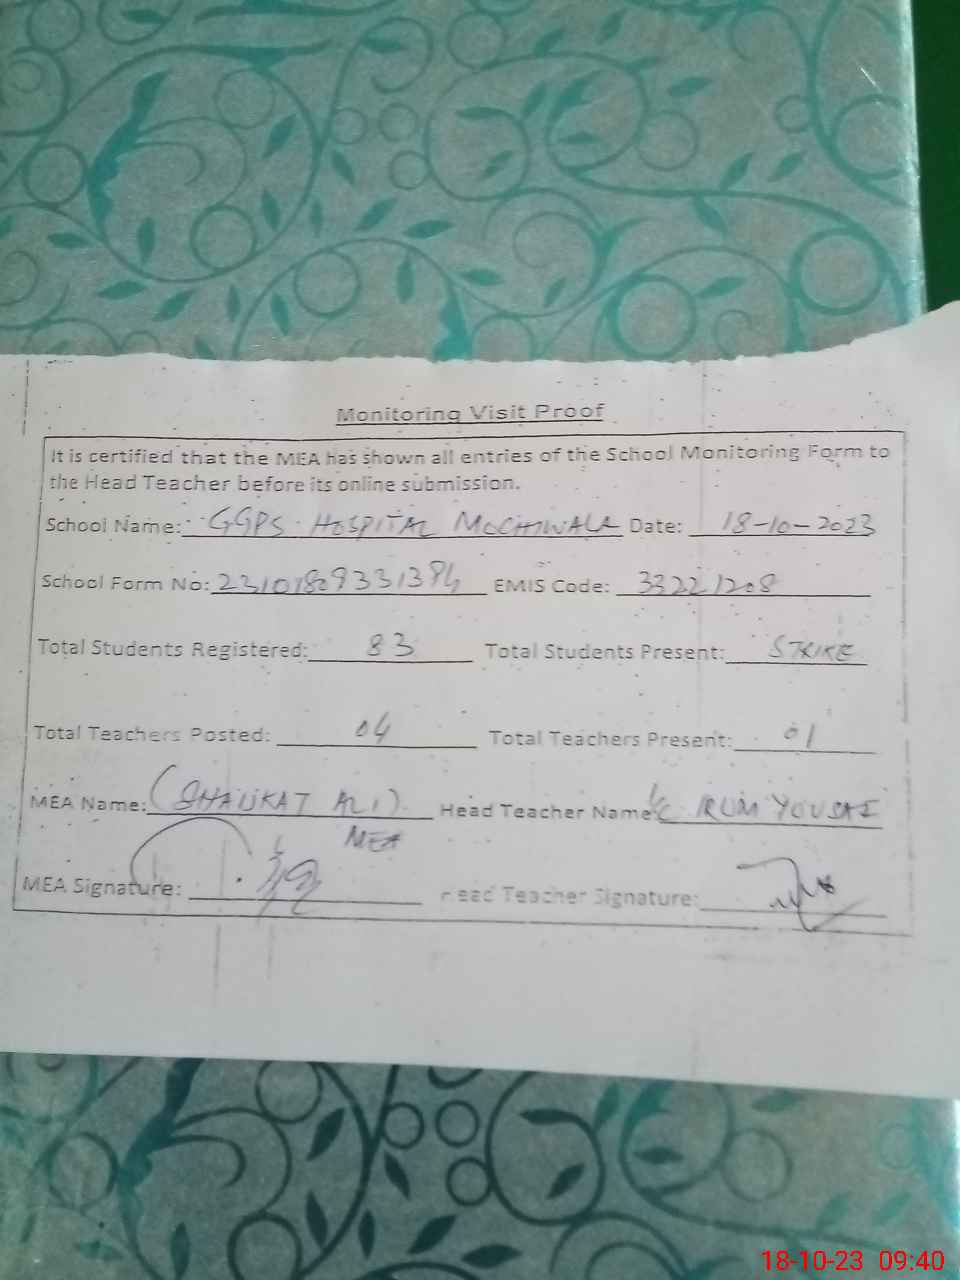 Monitoring Visit Proof
It is certified that the MEA has shown all entries of the School Monitoring Form to
the Head Teacher before its online submission.
School Name: GGPS HOSPITAL MOCHIWALA Date: 18-10-2023
School Form No: EMIS Code: 33221208
Total Students Registered: 83 Total Students Present: STRIKE
Total Teachers Posted: 04 Total Teachers Present: 01
MEA Name: (SHAUKAT ALI) Head Teacher Name: I/C IRUM
MEA
MEA Signature: Head Teacher Signature:
18-10-23 09:40